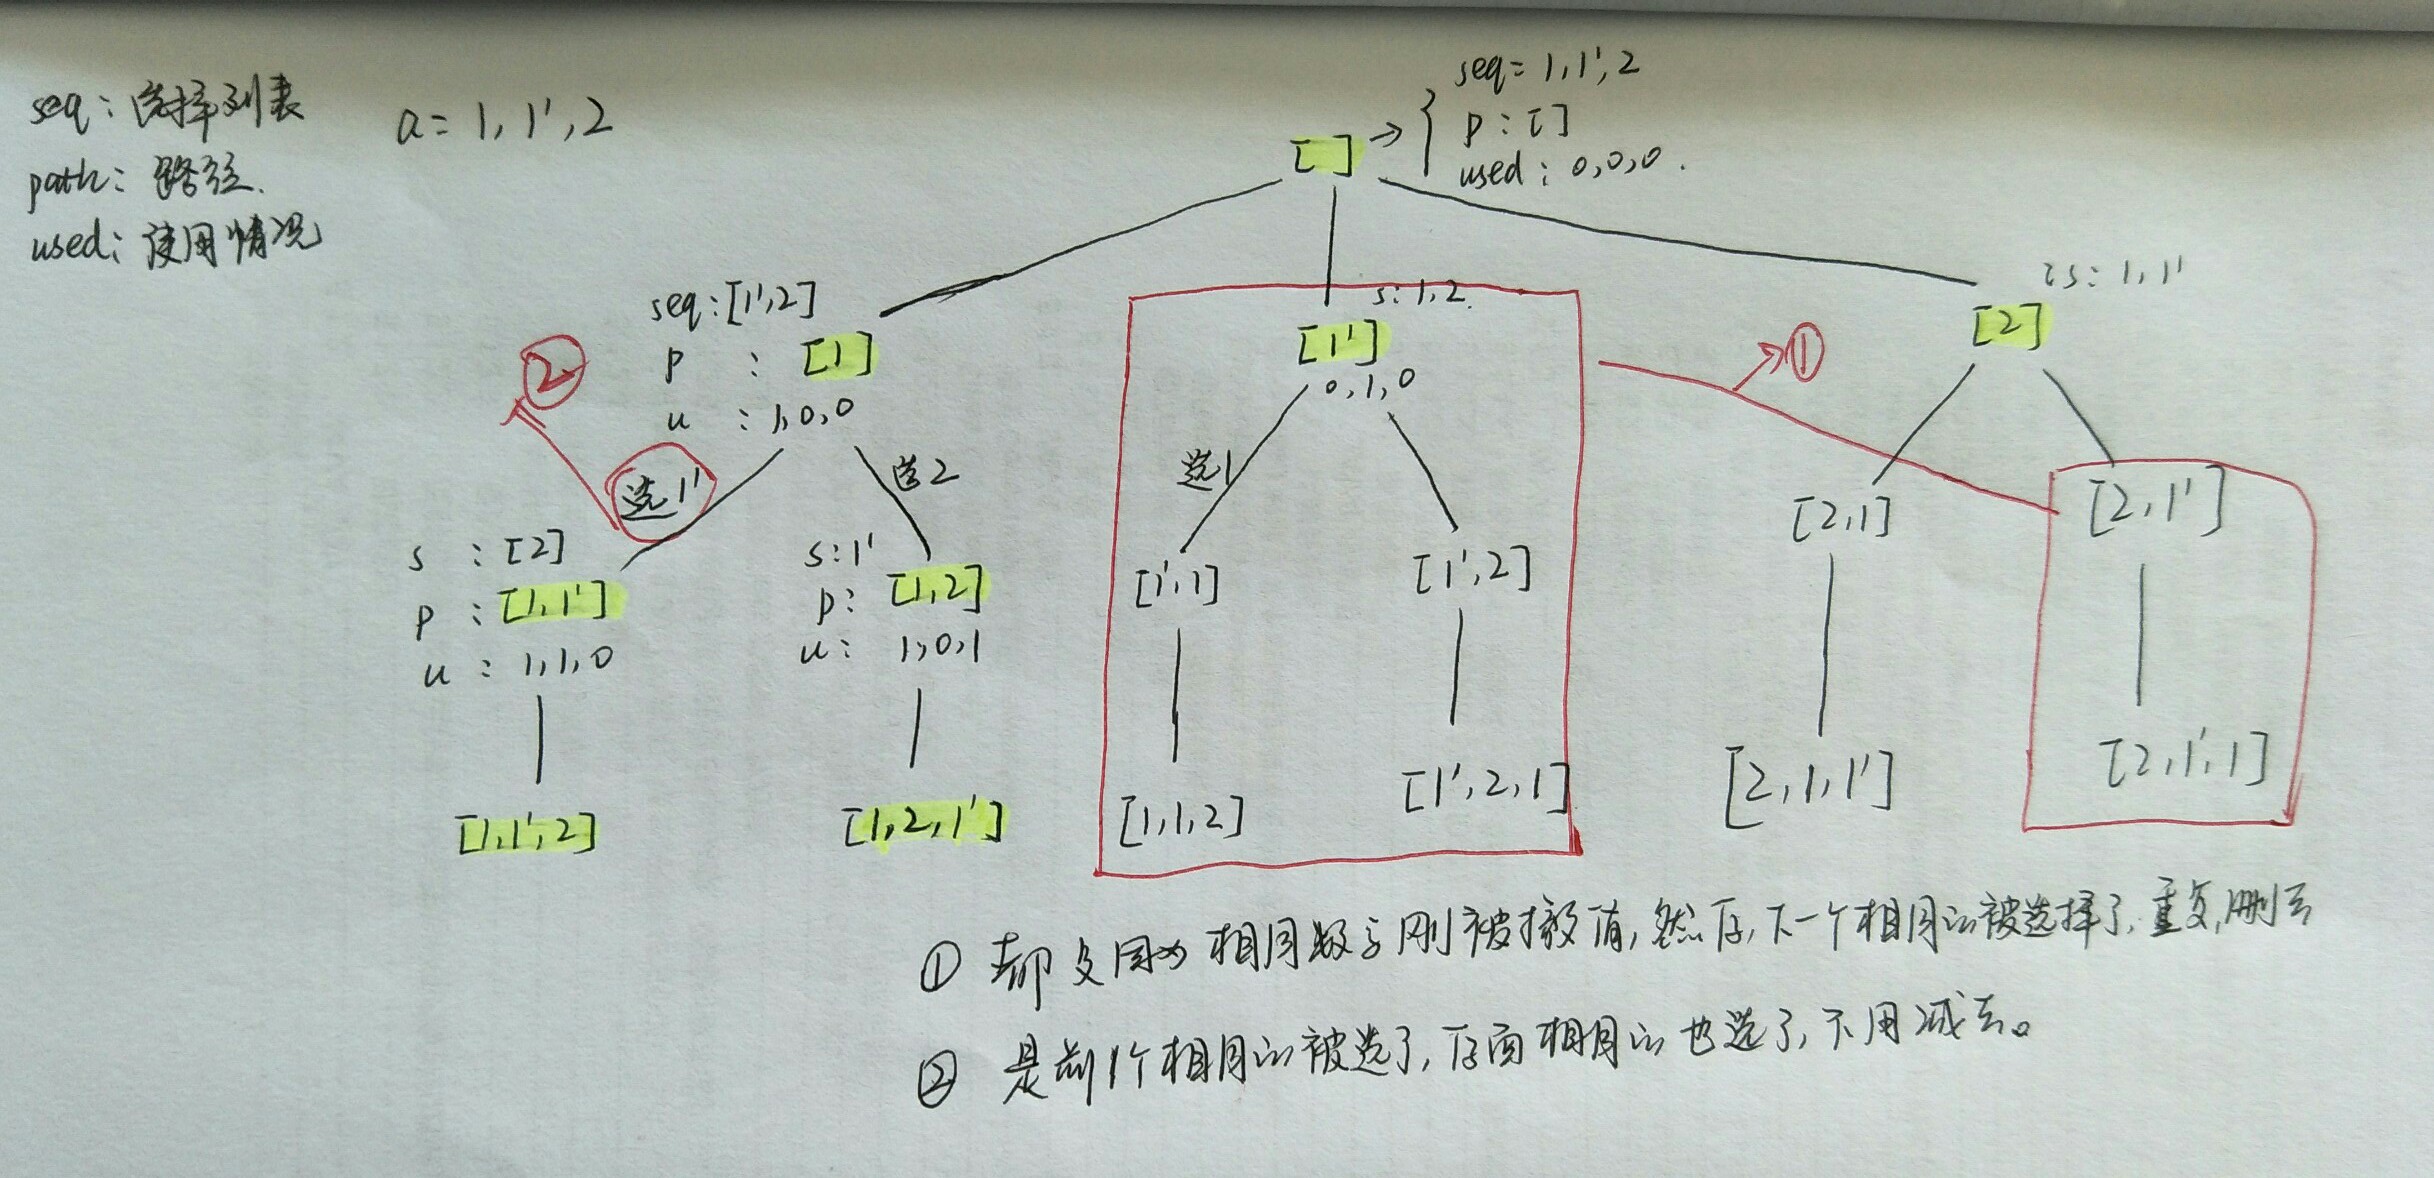 seq: 选择列表
path: 路径.
used: 使用情况
a = 1, 1', 2
seq= 1, 1', 2
[ ] → { p : [ ]
used : 0,0,0 .
seq:[1',2]
p : [1]
u : 1,0,0
s: 1,2.
[1']
0,1,0
s: 1,1'
[2]
①
②
选1'
选2
选1
s : [2]
p : [1,1']
u : 1,1,0
s:1'
p: [1,2]
u: 1,0,1
[1',1]
[1',2]
[2,1]
[2,1']
[1,1',2]
[1,2,1']
[1,1,2]
[1',2,1]
[2,1,1']
[2,1',1]
① 都是因为相同数字刚被撤销, 然后, 下一个相同的被选择了, 重复, 删去
② 是前1个相同的被选了, 后面相同的也选了, 不用减去。